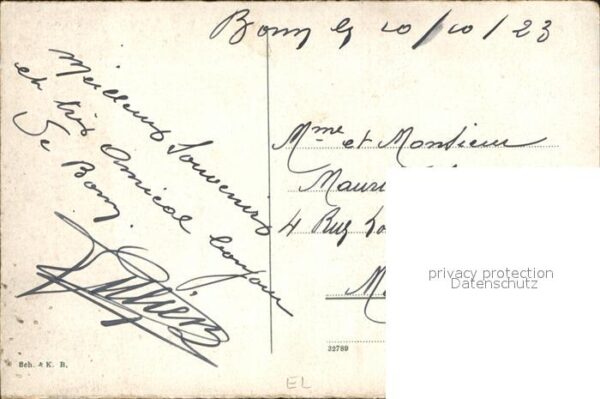 Bonn le 10/10/23
Meilleurs Souvenirs
et très amical bonjour
de Bonn.
Mme et Monsieur
Mauri
4 Rue
privacy protection
Datenschutz
32789
Sch. & K. B.
EL